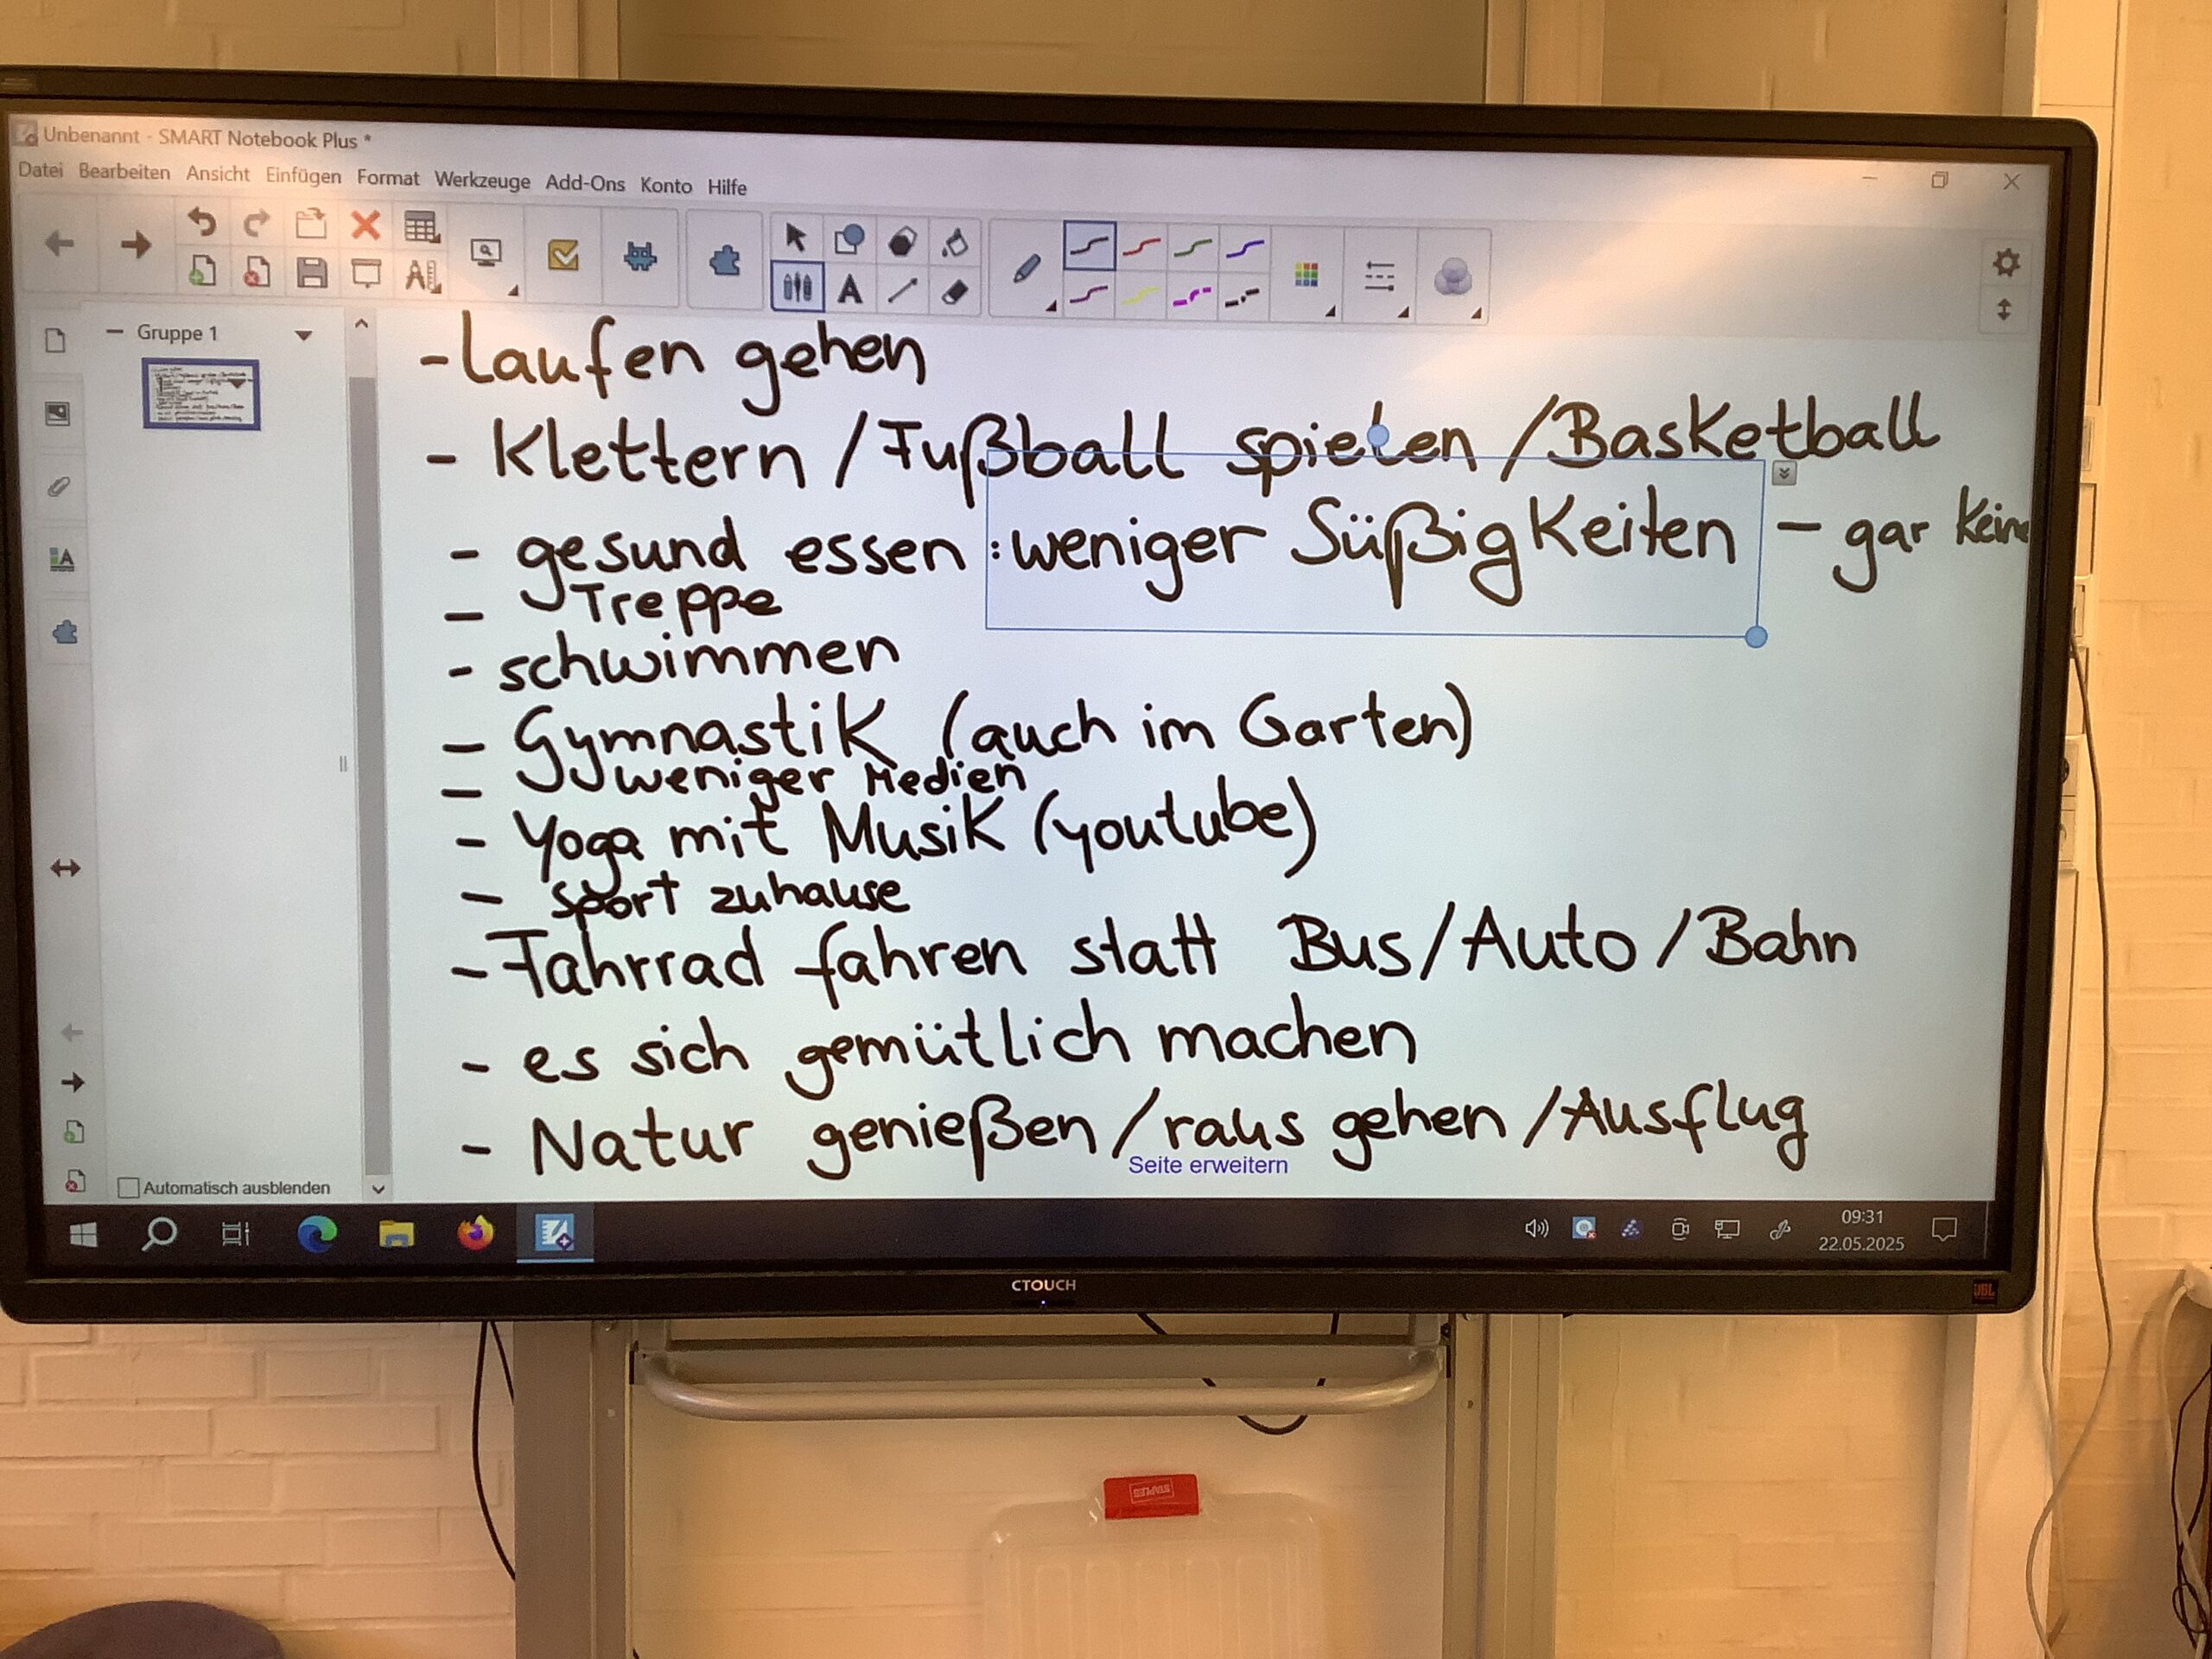 Unbenannt - SMART Notebook Plus *
Datei Bearbeiten Ansicht Einfügen Format Werkzeuge Add-Ons Konto Hilfe
Gruppe 1
- Laufen gehen
- Klettern / Fußball spielen / Basketball
- gesund essen : weniger Süßigkeiten - gar keine
- Treppe
- schwimmen
- Gymnastik (auch im Garten)
- weniger Medien
- Yoga mit Musik (youtube)
- Sport zuhause
- Fahrrad fahren statt Bus/Auto/Bahn
- es sich gemütlich machen
- Natur genießen/raus gehen/Ausflug
Seite erweitern
Automatisch ausblenden
09:31
22.05.2025
CTOUCH
JBL
STAPLES